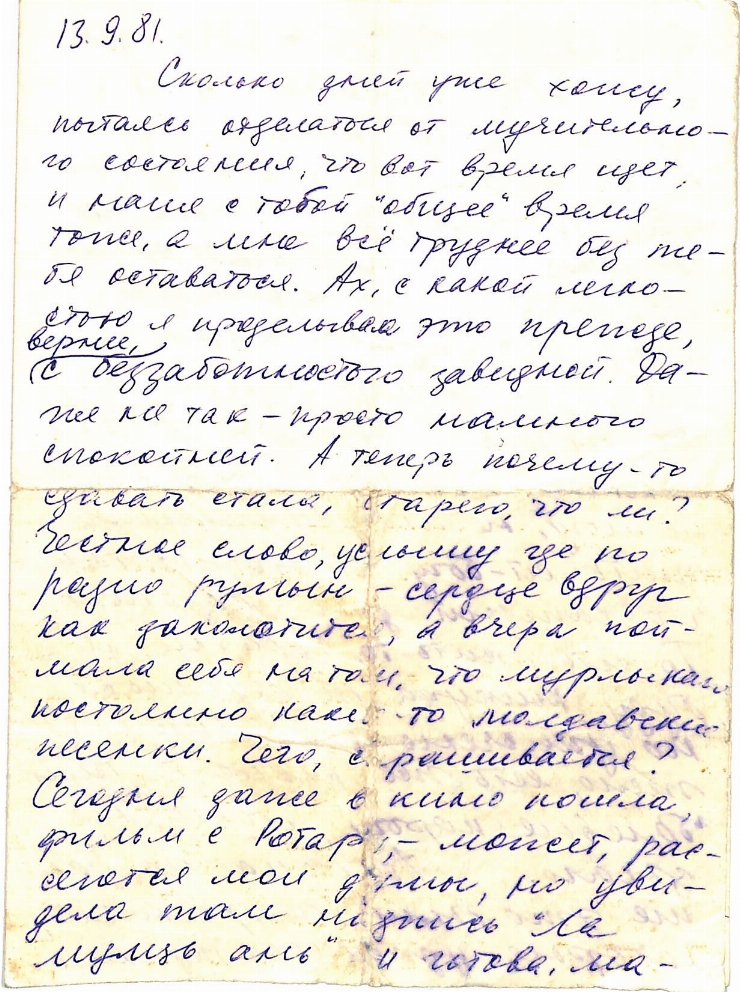 13.9.81.
Сколько дней уже хожу,
пытаясь отделаться от мучительно-
го состояния, что вот время идет,
и наше с тобой "общее" время
тоже, а мне всё труднее без те-
бя оставаться. Ах, с какой легко-
стью я проделывала это прежде,
вернее,
с беззаботностью завидной. Да-
же не так – просто намного
спокойней. А теперь почему-то
сдавать стала, старею, что ли?
Честное слово, услышу где по
радио румын – сердце вдруг
как заколотится, а вчера пой-
мала себя на том, что мурлыкаю
постоянно какие-то молдавские
песенки. Чего, спрашивается?
Сегодня даже в кино пошла,
фильм с Ротару, – может, рас-
сеются мои думы, но уви-
дела там надпись "Ла
мулць ань" и готова. ма-